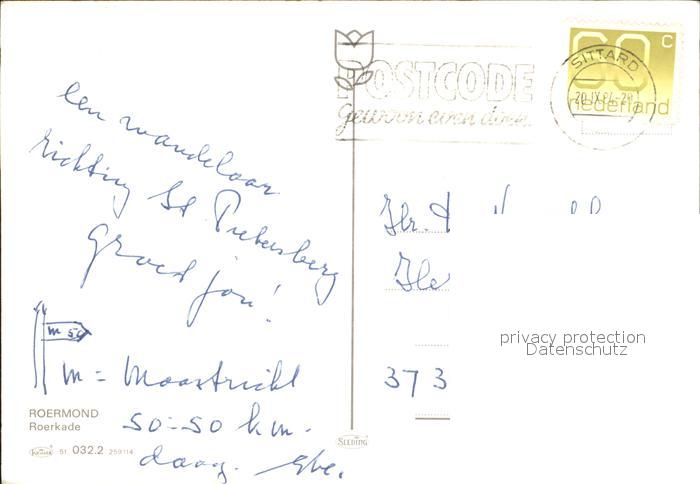 een wandelaar
richting St Pietersberg
groet jou!
m 50
m = Maastricht
50 = 50 km.
daag.
ROERMOND
Roerkade
51 032.2 259114
SLEDING
POSTCODE
gewoon even doen.
SITTARD
60 c
nederland
Hr.
373
privacy protection
Datenschutz